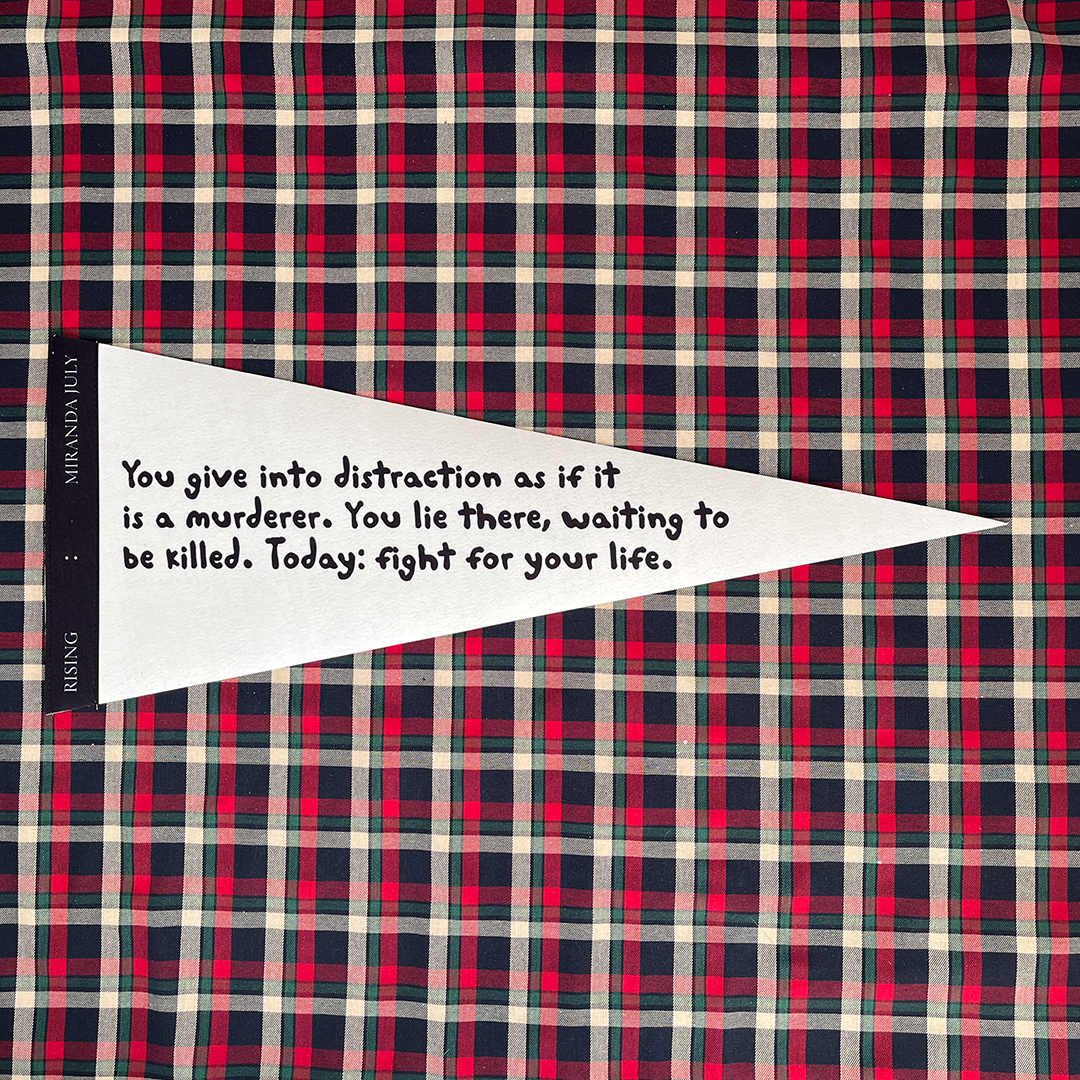 You give into distraction as if it
is a murderer. You lie there, waiting to
be killed. Today: fight for your life.
RISING : MIRANDA JULY